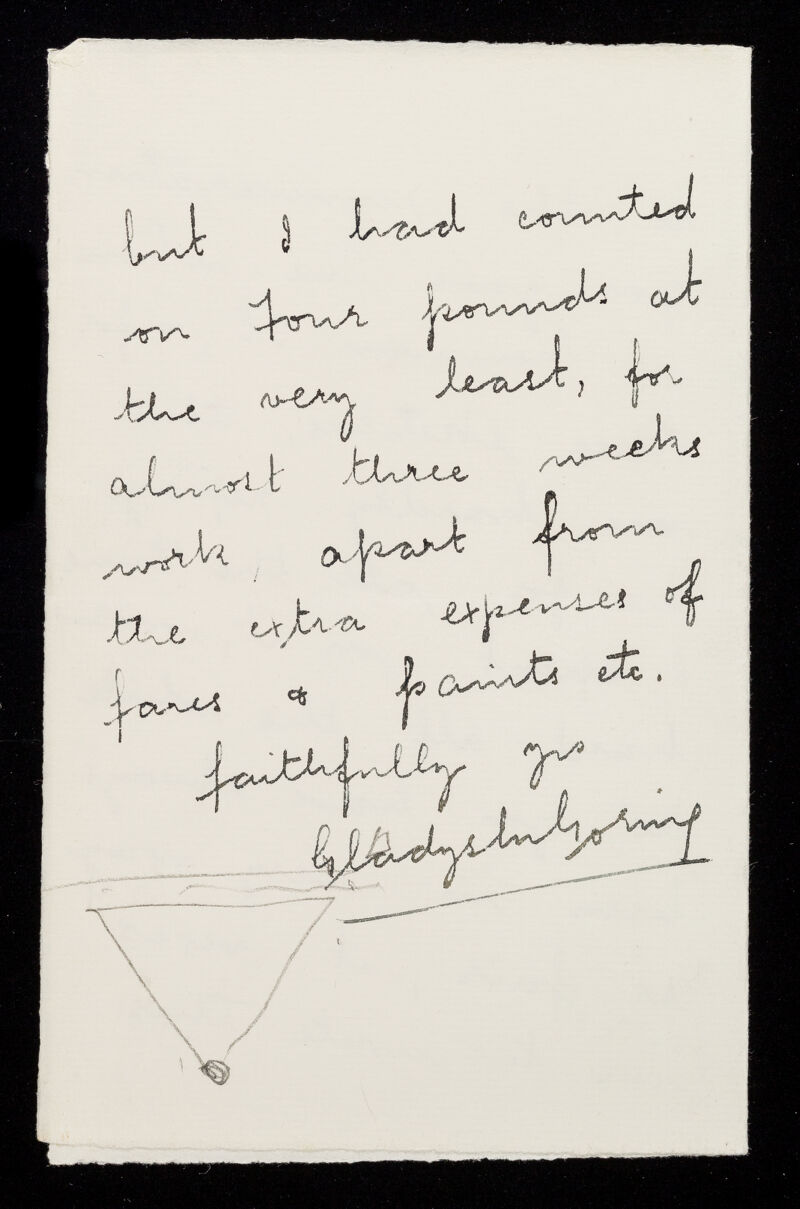 but I had counted
on Four pounds at
the very least, for
almost three weeks
work, apart from
the extra expenses of
fares & paints etc.
faithfully yrs
Gladys M Goring